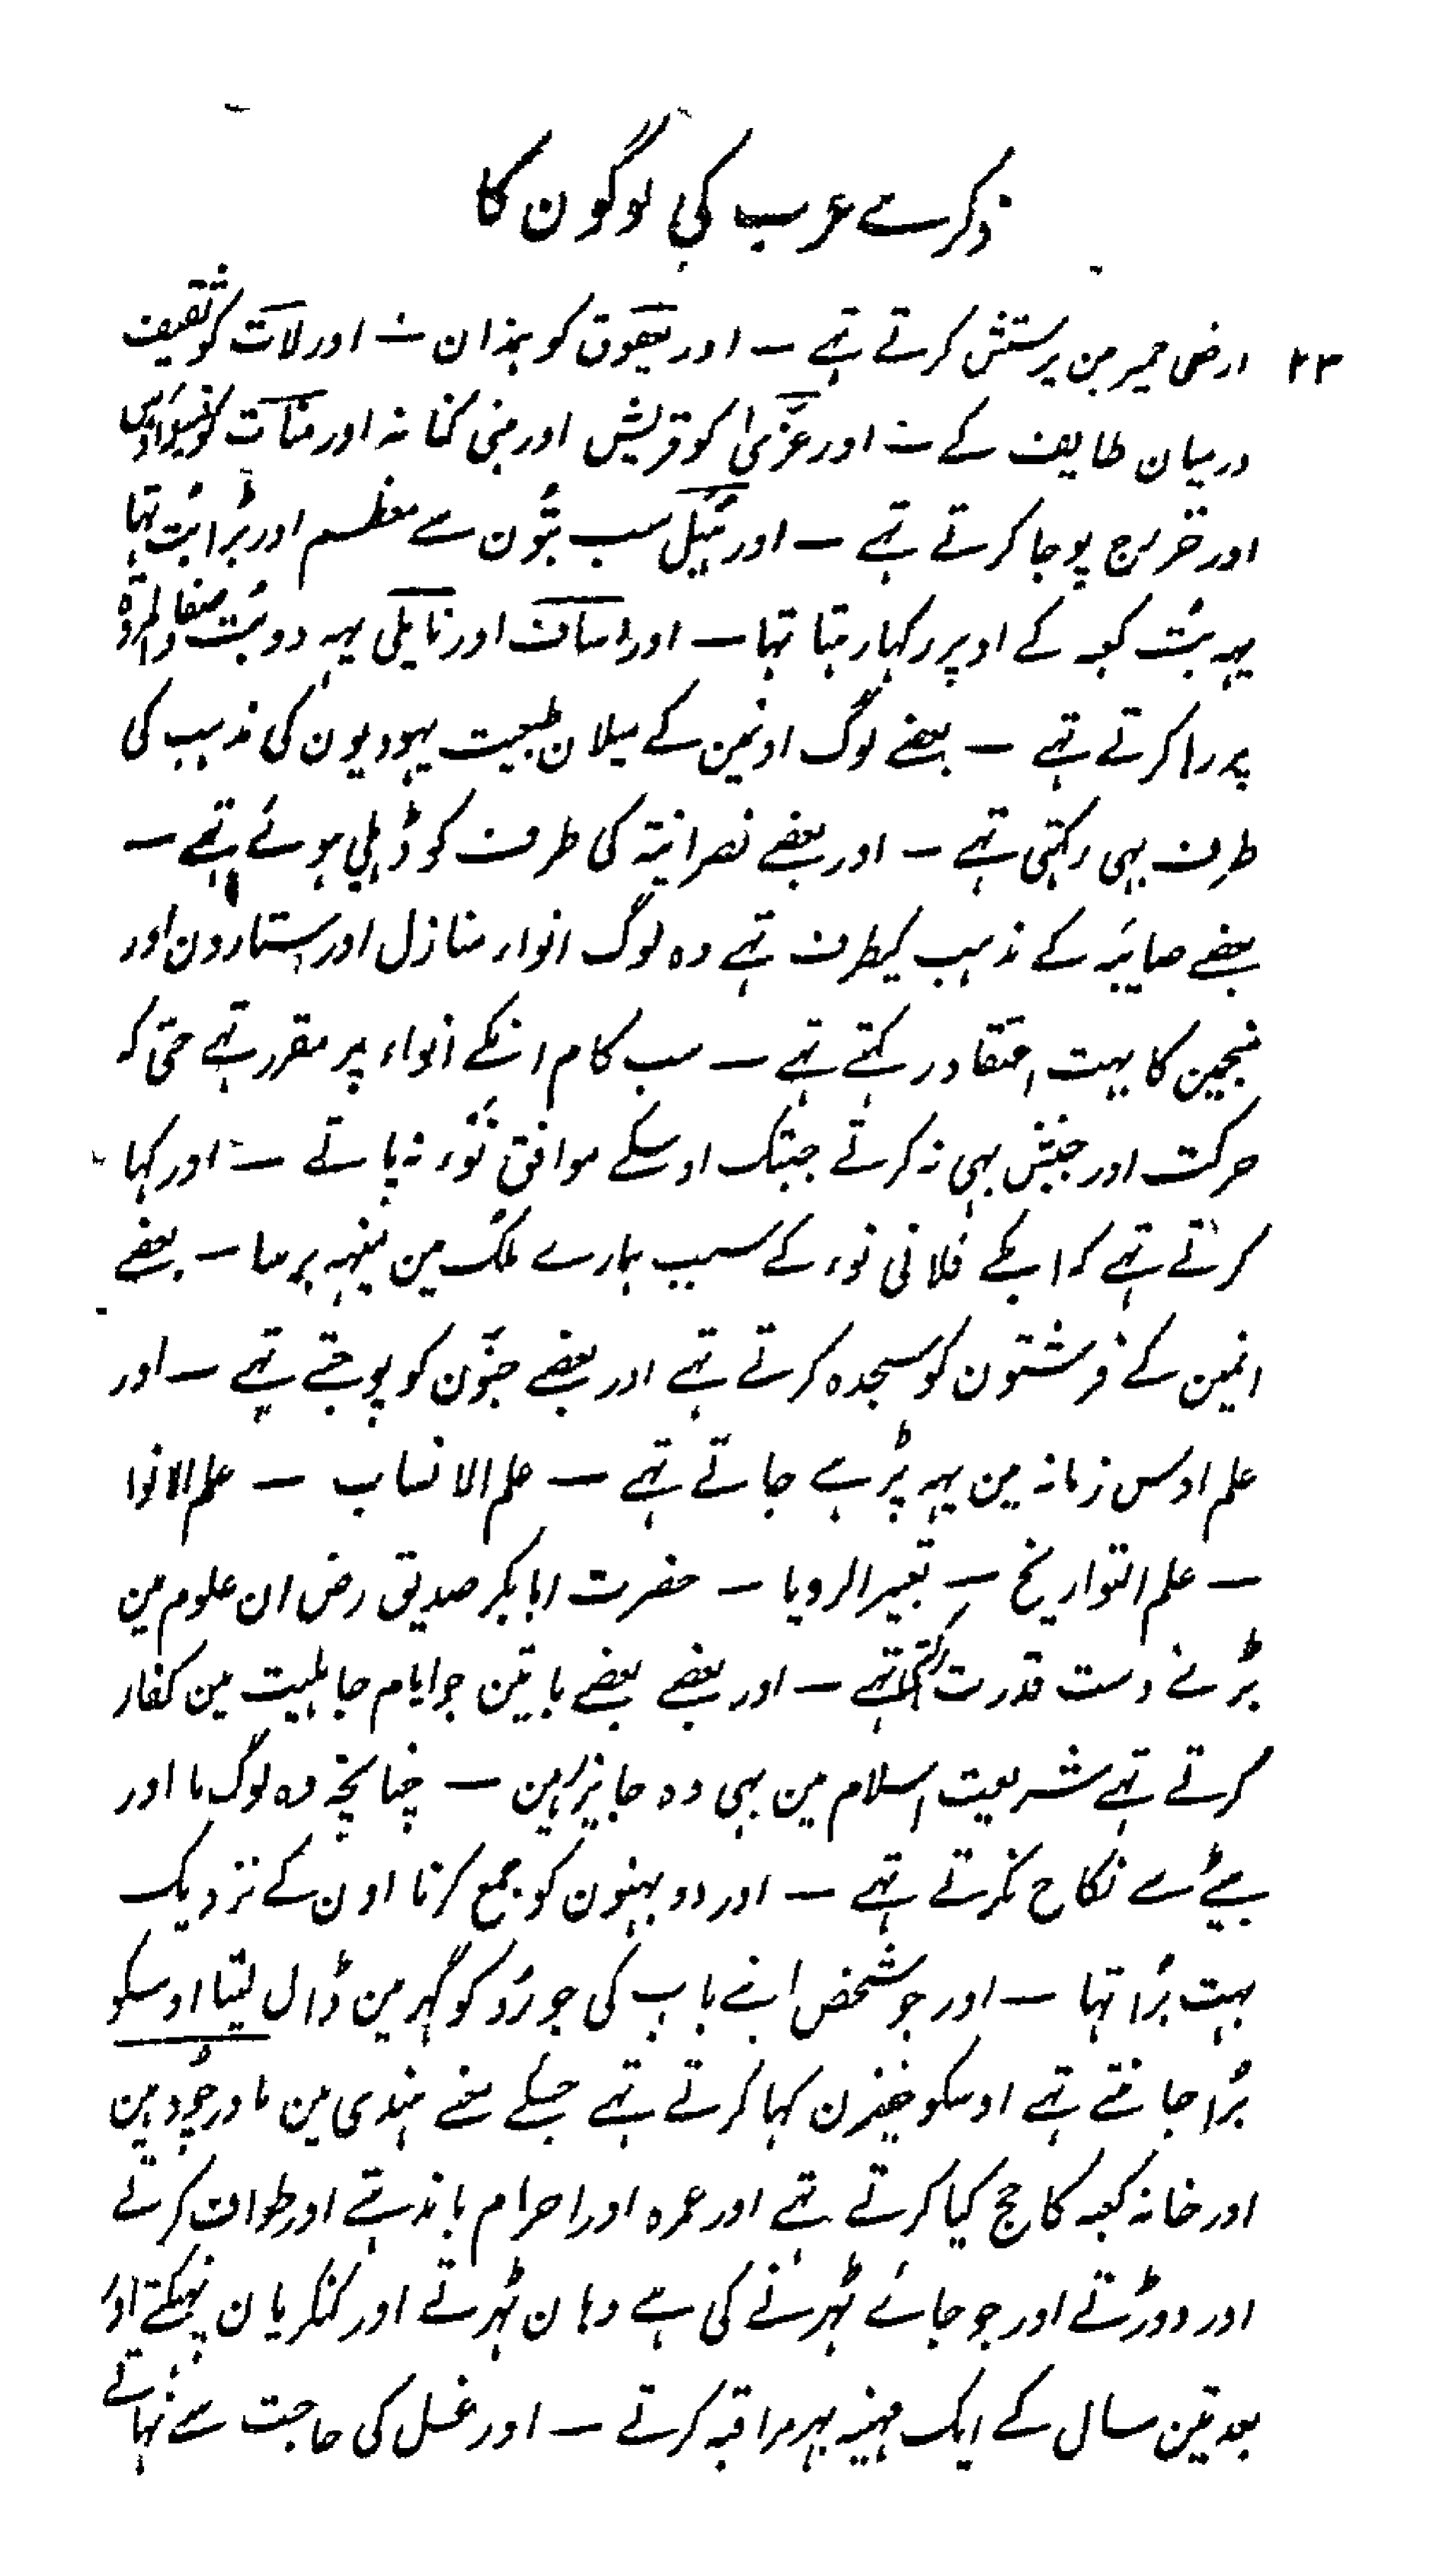 ذکر سے عرب کی لوگون کا
۲۳ ارض حمیر مین پرستش کرتے تہے — اور یعوق کو ہمذان نے اور لات کو ثقیف
درمیان طایف کے نے اور عزّیٰ کو قریش اور بنی کنانہ اور منات کو اوس
اور خزرج پوجا کرتے تہے — اور ہُبل سب بتّون سے معظم اور بڑا بُت تہا
یہہ بُت کعبہ کے اوپر رکہا رہتا تہا — اور اساف اور نایلی یہہ دو بُت صفا والمروۃ
پر رہا کرتے تہے — بعضے لوگ اونمین کے میلان طبیعت یہودیون کی مذہب کی
طرف بہی رکہتی تہے — اور بعضے نصرانیۃ کی طرف کو ڈہلی ہوئے تہے —
بعضے صایبہ کے مذہب کیطرف تہے وہ لوگ انواء منازل اور ستارون اور
منجمین کا بہت اعتقاد رکہتے تہے — سب کام انکے انواء پر مقرر تہے حتیٰ کہ
حرکت اور جنبش بہی نہ کرتے جبتک اوسکے موافق نُوء نہ پاتے — اور کہا
کرتے تہے کہ ابکے فلانی نوء کے سبب ہمارے ملک مین مینہہ برسا — بعضے
انمین کے فرشتون کو سجدہ کرتے تہے اور بعضے جنّون کو پوجتے تہے — اور
علم اوس زمانہ مین یہہ پڑہے جاتے تہے — علم الانساب — علم الانوا
— علم التواریخ — تعبیر الرویا — حضرت ابابکر صدیق رض ان علوم مین
بڑنے دست قدرت رکہتے تہے — اور بعضے بعضے باتین جو ایام جاہلیت مین کفار
کرتے تہے شریعت اسلام مین بہی وہ جایز ہین — چنانچہ وہ لوگ ما اور
بیٹے سے نکاح نکرتے تہے — اور دو بہنون کو جمع کرنا اون کے نزدیک
بہت بُرا تہا — اور جو شخص اپنے باپ کی جورُو کو گہر مین ڈال لیتا اوسکو
بُرا جانتے تہے اوسکو ضیزن کہا کرتے تہے جسکے معنے ہندی مین مادرچود ہین
اور خانہ کعبہ کا حج کیا کرتے تہے اور عمرہ اور احرام باندہتے اور طواف کرتے
اور دوڑتے اور جو جائے ٹہرنے کی ہے وہان ٹہرتے اور کنکریان پہینکتے اور
بعد تین سال کے ایک مہینہ بہر مراقبہ کرتے — اور غسل کی حاجت سے نہاتے